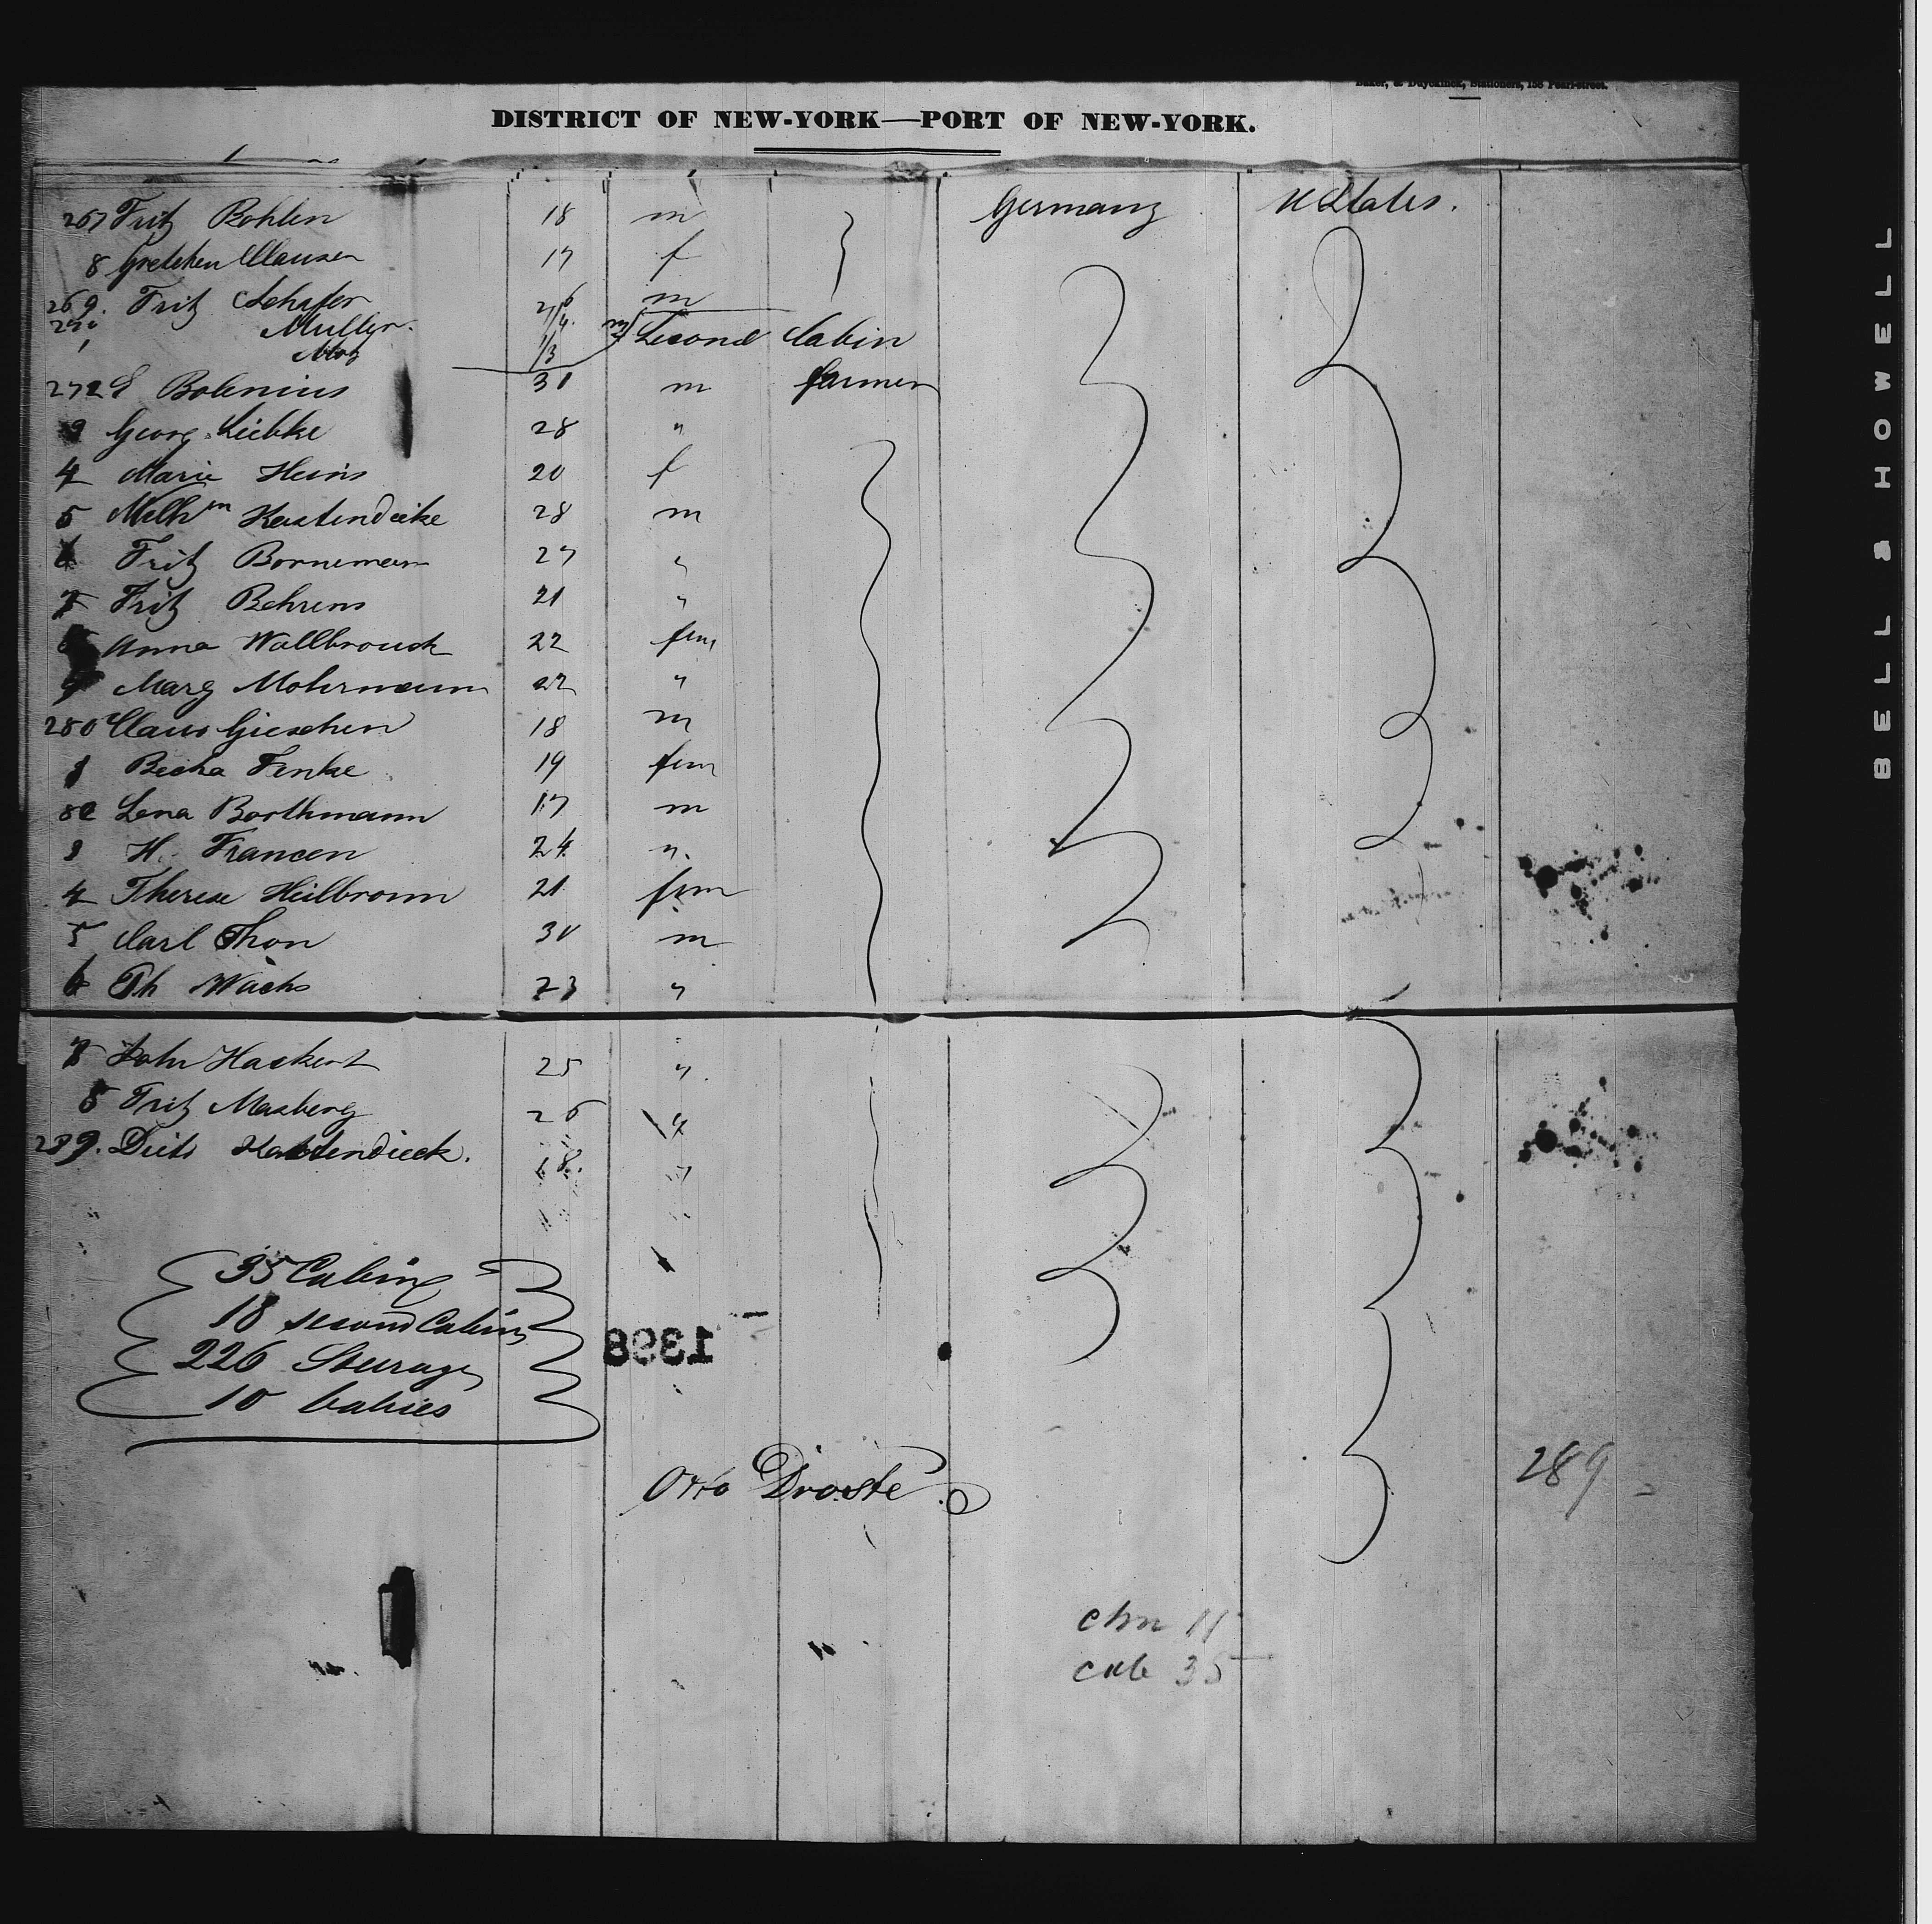 Baker, & Duyckinck, Stationers, 158 Pearl-street.
DISTRICT OF NEW-YORK—PORT OF NEW-YORK.
267 Fritz Bohlen 18 m Germany U States.
8 Gretchen Clausen 17 f
269. Fritz Schafer 26 m
Muller.
Second Cabin
272 Bolenius 31 m farmer
Georg Liebke 28 "
4 Marie Heins 20 f
5 Wilhm Kastendieke 28 m
6 Fritz Bornemann 27 "
7 Fritz Behrens 21 "
Anna Wallbrouck 22 fem
9 Marg Mohrmann 22 "
280 Claus Gieschen 18 m
1 Becka Finke 19 fem
82 Lena Borthmann 17 m
3 H. Francen 24 "
4 Therese Heilbronn 21 fem
5 Carl Thon 30 m
6 Th Wachs 23 "
7 John Hackert 25 "
8 Fritz Masberg 26 "
289. Kastendieck. 18. "
35 Cabin
18 second Cabin
226 Steerage
10 babies
1398
Otto Droste
289
chn 11
cab 35
BELL & HOWELL